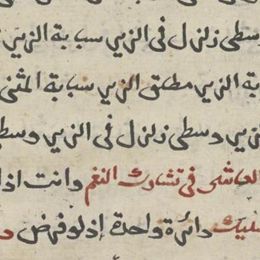 وسطى زلزل فى الزير سبابة الزير
بة الزير مطلق الزير سبابة المثنى
لزير وسطى زلزل فى الزير وسطى
العاشر فى تشارك النغم وانت اذا
عليك دائرة واحدة اذ لو فرض